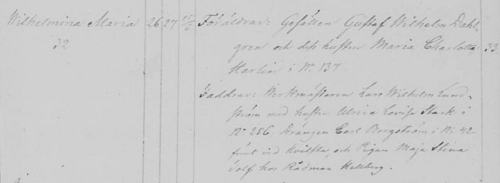 Wilhelmina Maria 26 27 Föräldrar: Gesällen Gustaf Wilhelm Dahl-
32 gren och dess hustru Maria Charlotta 33
Harlin i No 137
Faddrar: Werkmästaren Lars Wilhelm Lund-
ström med hustru Ulrica Lovisa Stark i
No 256 Carl Bergström i No 42
samt och Pigan Maja Stina
hos Rådman